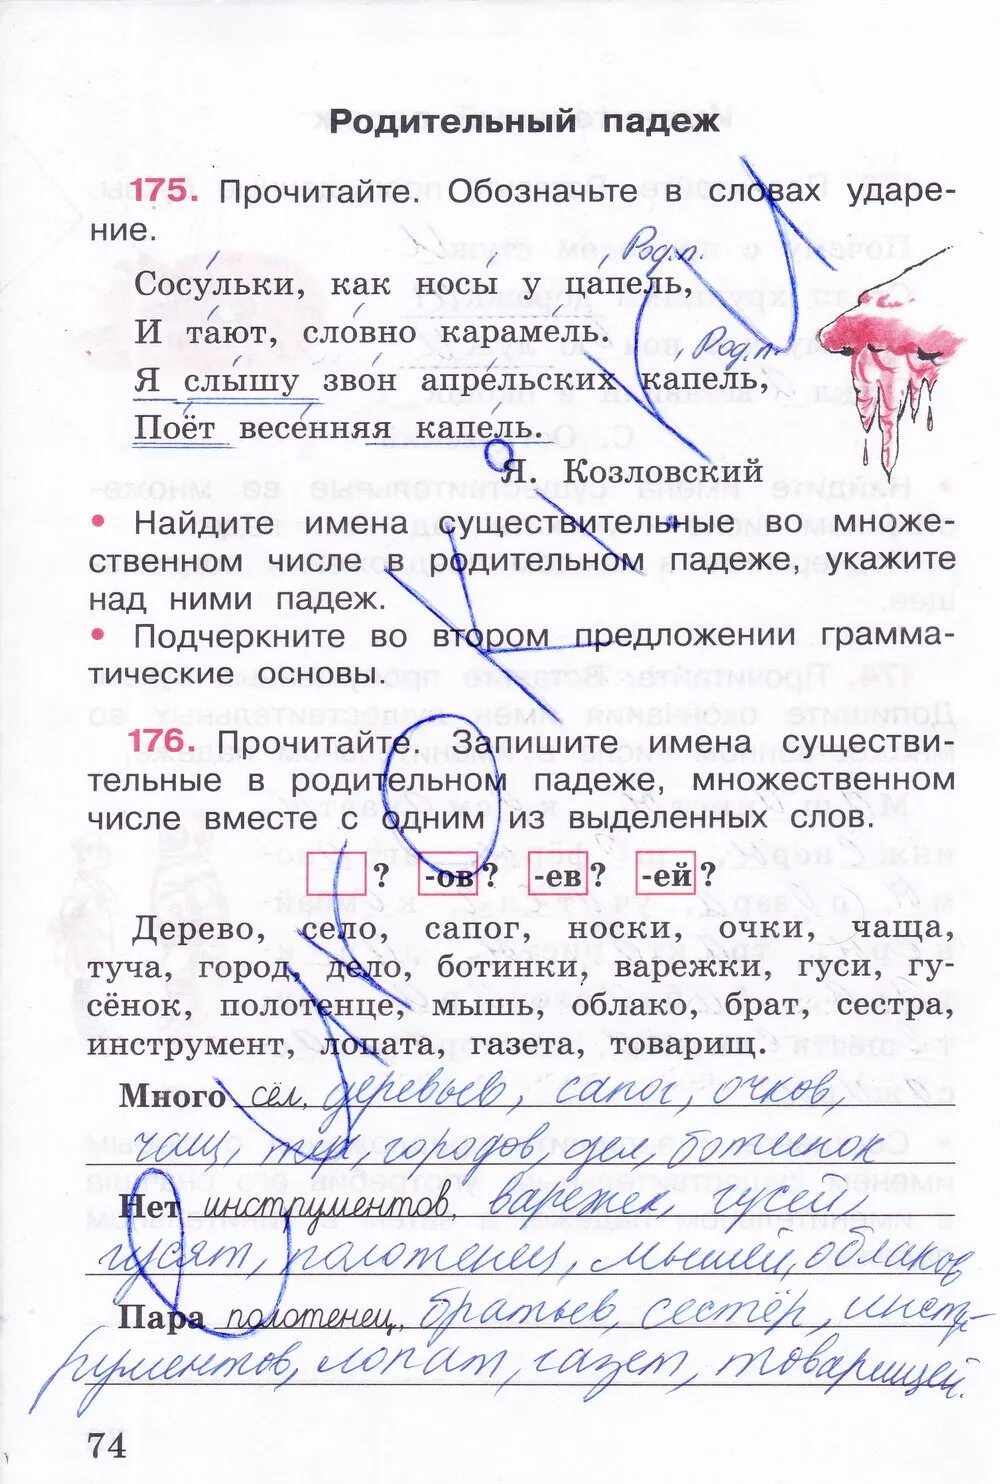 Родительный падеж
175. Прочитайте. Обозначьте в словах ударе-
ние.
Род.п.
Сосульки, как носы у цапель,
И тают, словно карамель.
Род.п.
Я слышу звон апрельских капель,
Поёт весенняя капель.
Я. Козловский
• Найдите имена существительные во множе-
ственном числе в родительном падеже, укажите
над ними падеж.
• Подчеркните во втором предложении грамма-
тические основы.
176. Прочитайте. Запишите имена существи-
тельные в родительном падеже, множественном
числе вместе с одним из выделенных слов.
? -ов? -ев? -ей?
Дерево, село, сапог, носки, очки, чаща,
туча, город, дело, ботинки, варежки, гуси, гу-
сёнок, полотенце, мышь, облако, брат, сестра,
инструмент, лопата, газета, товарищ.
Много сёл, деревьев, сапог, очков,
чащ, туч, городов, дел, ботинок
Нет инструментов, варежек, гусей,
гусят, полотенец, мышей, облаков
Пара полотенец, братьев, сестёр, инст-
рументов, лопат, газет, товарищей.
74